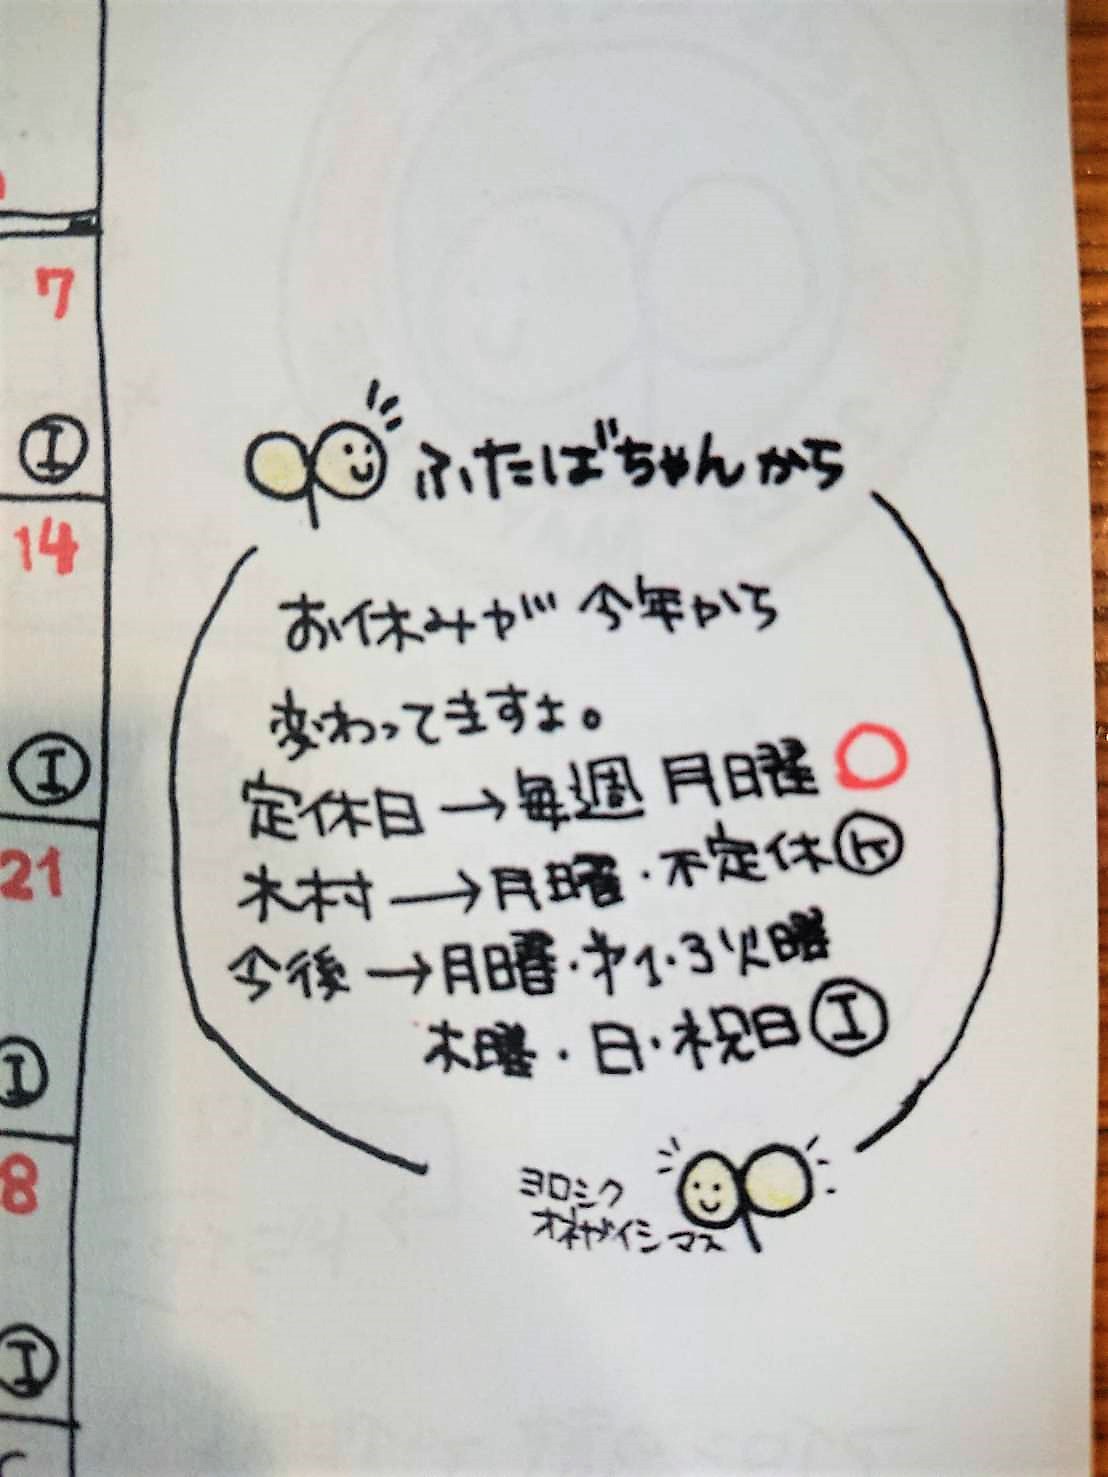 7
Ⓘ
14
Ⓘ
21
Ⓘ
8
Ⓘ
ふたばちゃんから
お休みが 今年から
変わってきますよ。
定休日→毎週 月日曜○
木村→月曜・不定休㋘
今後→月曜・第1・3火曜
木曜・日・祝日㋓
ヨロシク
オネガイシマス